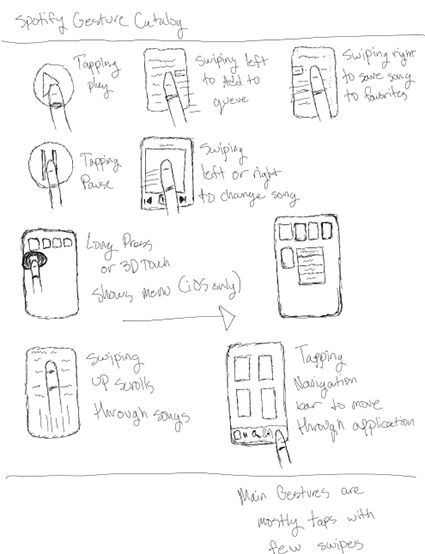 Spotify Gesture Catalog
Tapping
play
Swiping left
to Add to
queue
Swiping right
to save song
to favorites
Tapping
Pause
Swiping
left or right
to change song
Long Press
or 3D Touch
shows menu (iOS only)
Swiping
up scrolls
through songs
Tapping
Navigation
bar to move
through application
Main Gestures are
mostly taps with
few swipes